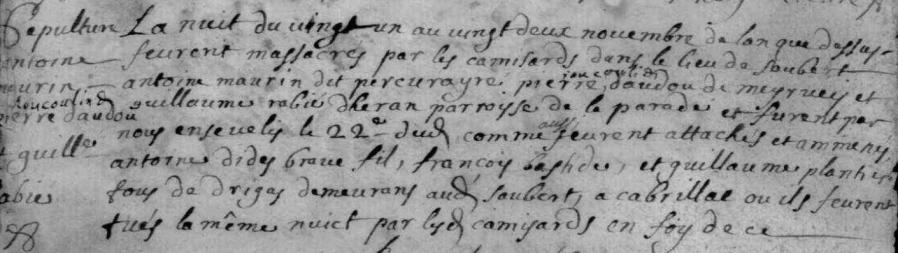 Sepulture La nuit du vingt un au vingt deux novembre de lan que dessus
antoine feurent massacrés par les camisards dans le lieu de saubert
maurin antoine maurin dit percurayre, pierre daudou de meyrueis et
roucoulin
roucoulin
pierre daudou guillaume rabié dheran parroysse de la parade et furent par
nous ensevelis le 22e dud, comme aussi feurent attachés et ammenes,
et guille antoine dides brave fil, françois bastide, et guillaume plantier
rabié tous de drigas demeurans aud, saubert, a cabrillac ou ils feurent
tués la même nuict par lesd, camisards en foy de ce